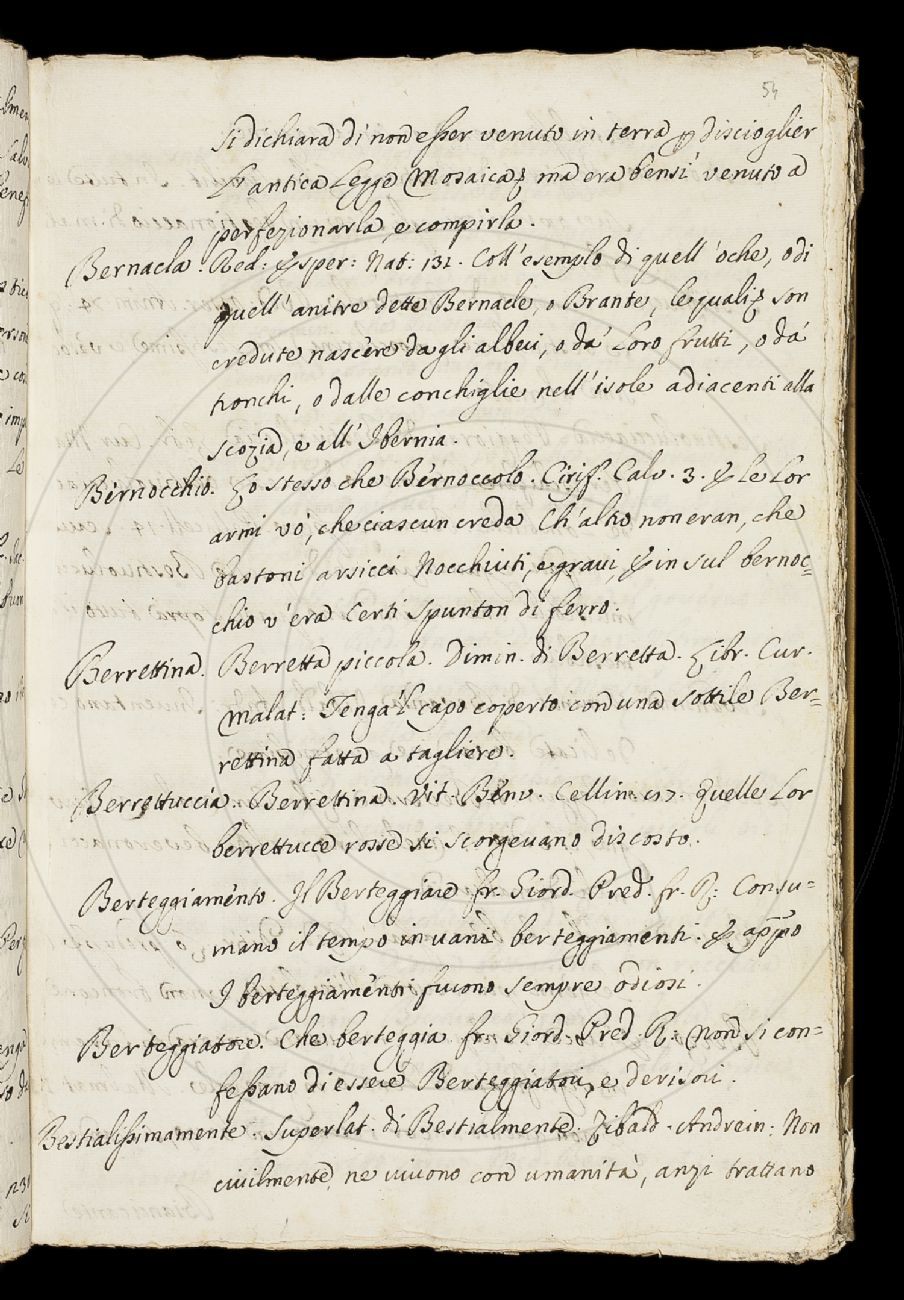 54
Si dichiara di non esser venuto in terra p discioglier
l'antica Legge Mosaica; ma era bensì venuto a
perfezionarla, e compirla.
Bernacla. Red: Esper: Nat: 131. Coll'esemplo di quell'oche, o di
quell'anitre dette Bernacle, o Brante, le quali; son
credute nascere dagli alberi, o da' Loro frutti, o da'
tronchi, o dalle conchiglie nell'isole adiacenti alla
Scozia, e all'Ibernia.
Bernocchio. Lo stesso che Bernoccolo. Ciriff. Calv. 3. E le Lor
armi vo', che ciascun creda Ch'altro non eran, che
bastoni arsicci Nocchiuti, e gravi, E in sul bernoc=
chio v'era Certi Spunton di ferro.
Berrettina. Berretta piccola. Dimin. di Berretta. Libr. Cur.
Malat: Tenga 'l capo coperto con una sottile Ber=
rettina fatta a tagliere.
Berrettuccia. Berrettina. Vit. Benv. Cellin. Quelle Lor
berrettucce rosse si scorgevano discosto.
Berteggiamento. Il Berteggiare fr. Giord. Pred. fr. R: Consu=
mano il tempo in vani berteggiamenti. E appo
I berteggiamenti furono sempre odiosi.
Berteggiatore. Che berteggia fr. Giord. Pred. R: Non si con=
fessano di essere Berteggiatori, e derisori.
Bestialissimamente. Superlat. di Bestialmente. Zibald. Andrein: Non
civilmente, ne vivono con umanità, anzi trattano